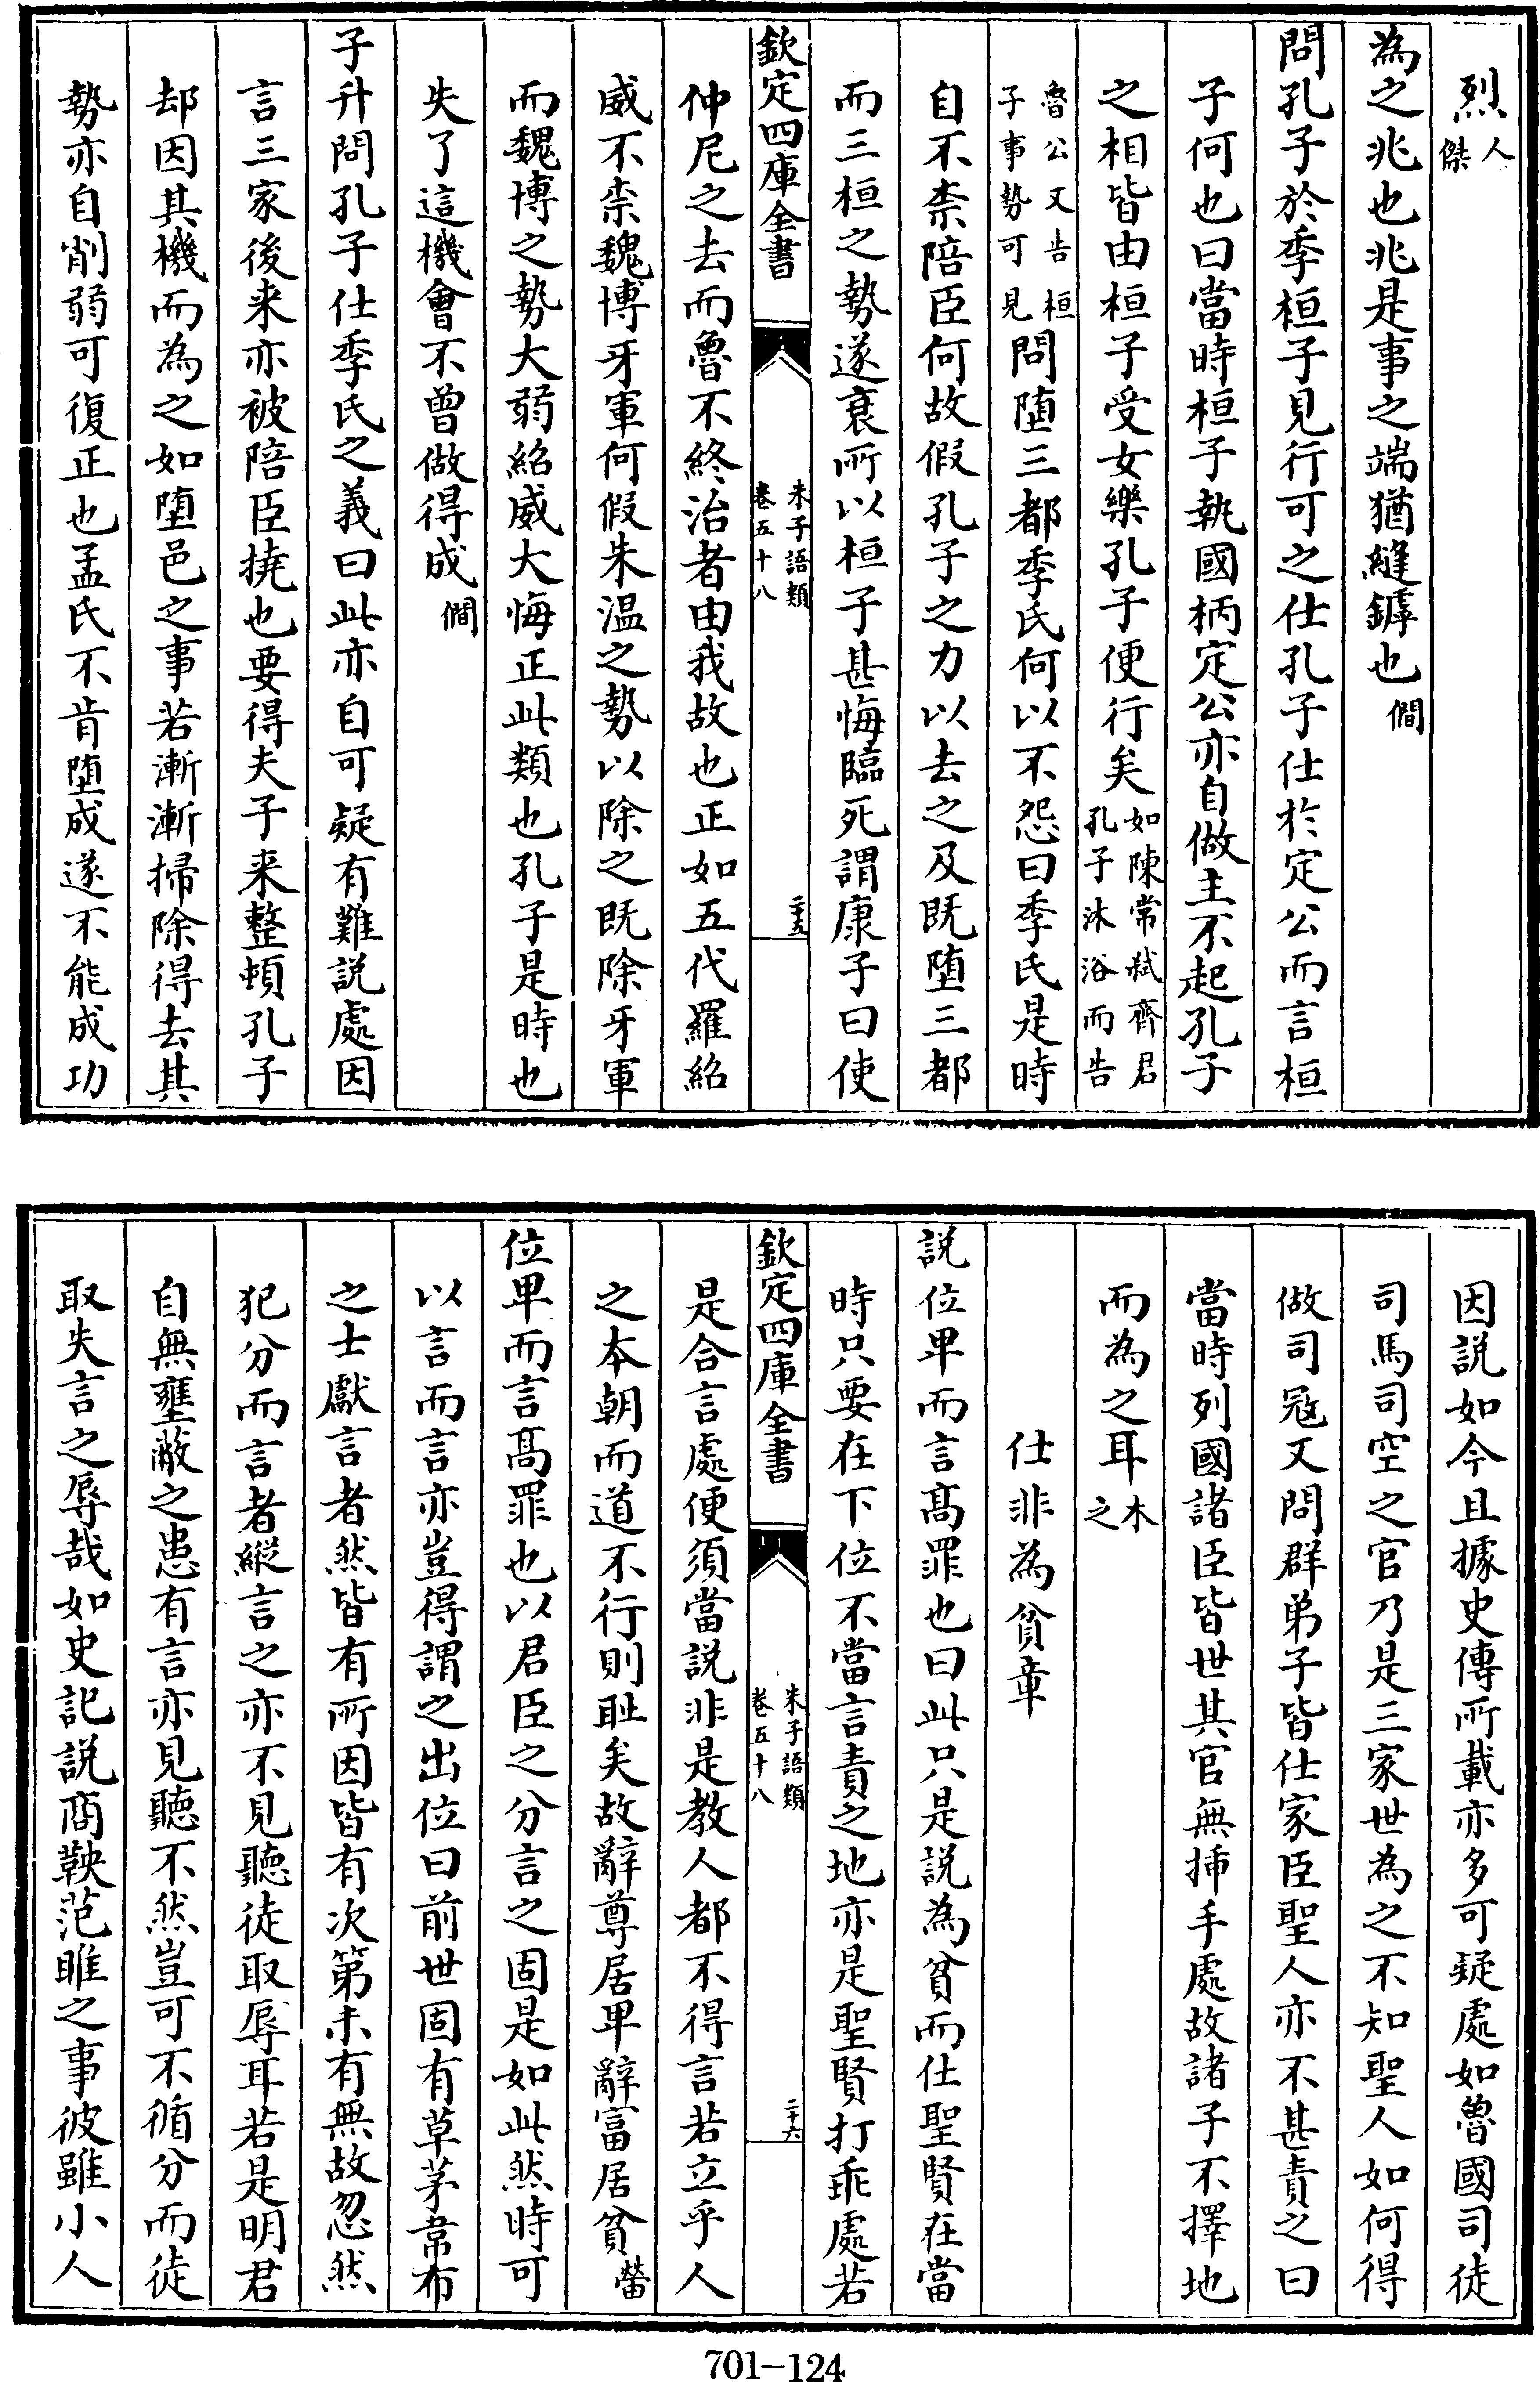 烈人傑
為之兆也兆是事之端猶縫罅也㵎
問孔子於季桓子見行可之仕孔子仕於定公而言桓
子何也曰當時桓子執國柄定公亦自做主不起孔子
之相皆由桓子受女樂孔子便行矣如陳常弑齊君孔子沐浴而告
魯公又告桓子事勢可見問墮三都季氏何以不怨曰季氏是時
自不柰陪臣何故假孔子之力以去之及既墮三都
而三桓之勢遂衰所以桓子甚悔臨死謂康子曰使
欽定四庫全書 朱子語類卷五十八 二十五
仲尼之去而魯不終治者由我故也正如五代羅紹
威不柰魏博牙軍何假朱温之勢以除之既除牙軍
而魏博之勢大弱紹威大悔正此類也孔子是時也
失了這機會不曾做得成僩
子升問孔子仕季氏之義曰此亦自可疑有難説處因
言三家後来亦被陪臣撓也要得夫子来整頓孔子
却因其機而為之如墮邑之事若漸漸掃除得去其
勢亦自削弱可復正也孟氏不肯墮成遂不能成功
因説如今且據史傳所載亦多可疑處如魯國司徒
司馬司空之官乃是三家世為之不知聖人如何得
做司冦又問群弟子皆仕家臣聖人亦不甚責之曰
當時列國諸臣皆世其官無揷手處故諸子不擇地
而為之耳木之
仕非為貧章
説位卑而言髙罪也曰此只是説為貧而仕聖賢在當
時只要在下位不當言責之地亦是聖賢打乖處若
欽定四庫全書 朱子語類卷五十八 二十六
是合言處便須當説非是教人都不得言若立乎人
之本朝而道不行則耻矣故辭尊居卑辭富居貧㽦
位卑而言髙罪也以君臣之分言之固是如此然時可
以言而言亦豈得謂之出位曰前世固有草茅韋布
之士獻言者然皆有所因皆有次第未有無故忽然
犯分而言者縱言之亦不見聽徒取辱耳若是明君
自無壅蔽之患有言亦見聽不然豈可不循分而徒
取失言之辱哉如史記説商鞅范雎之事彼雖小人
701—124